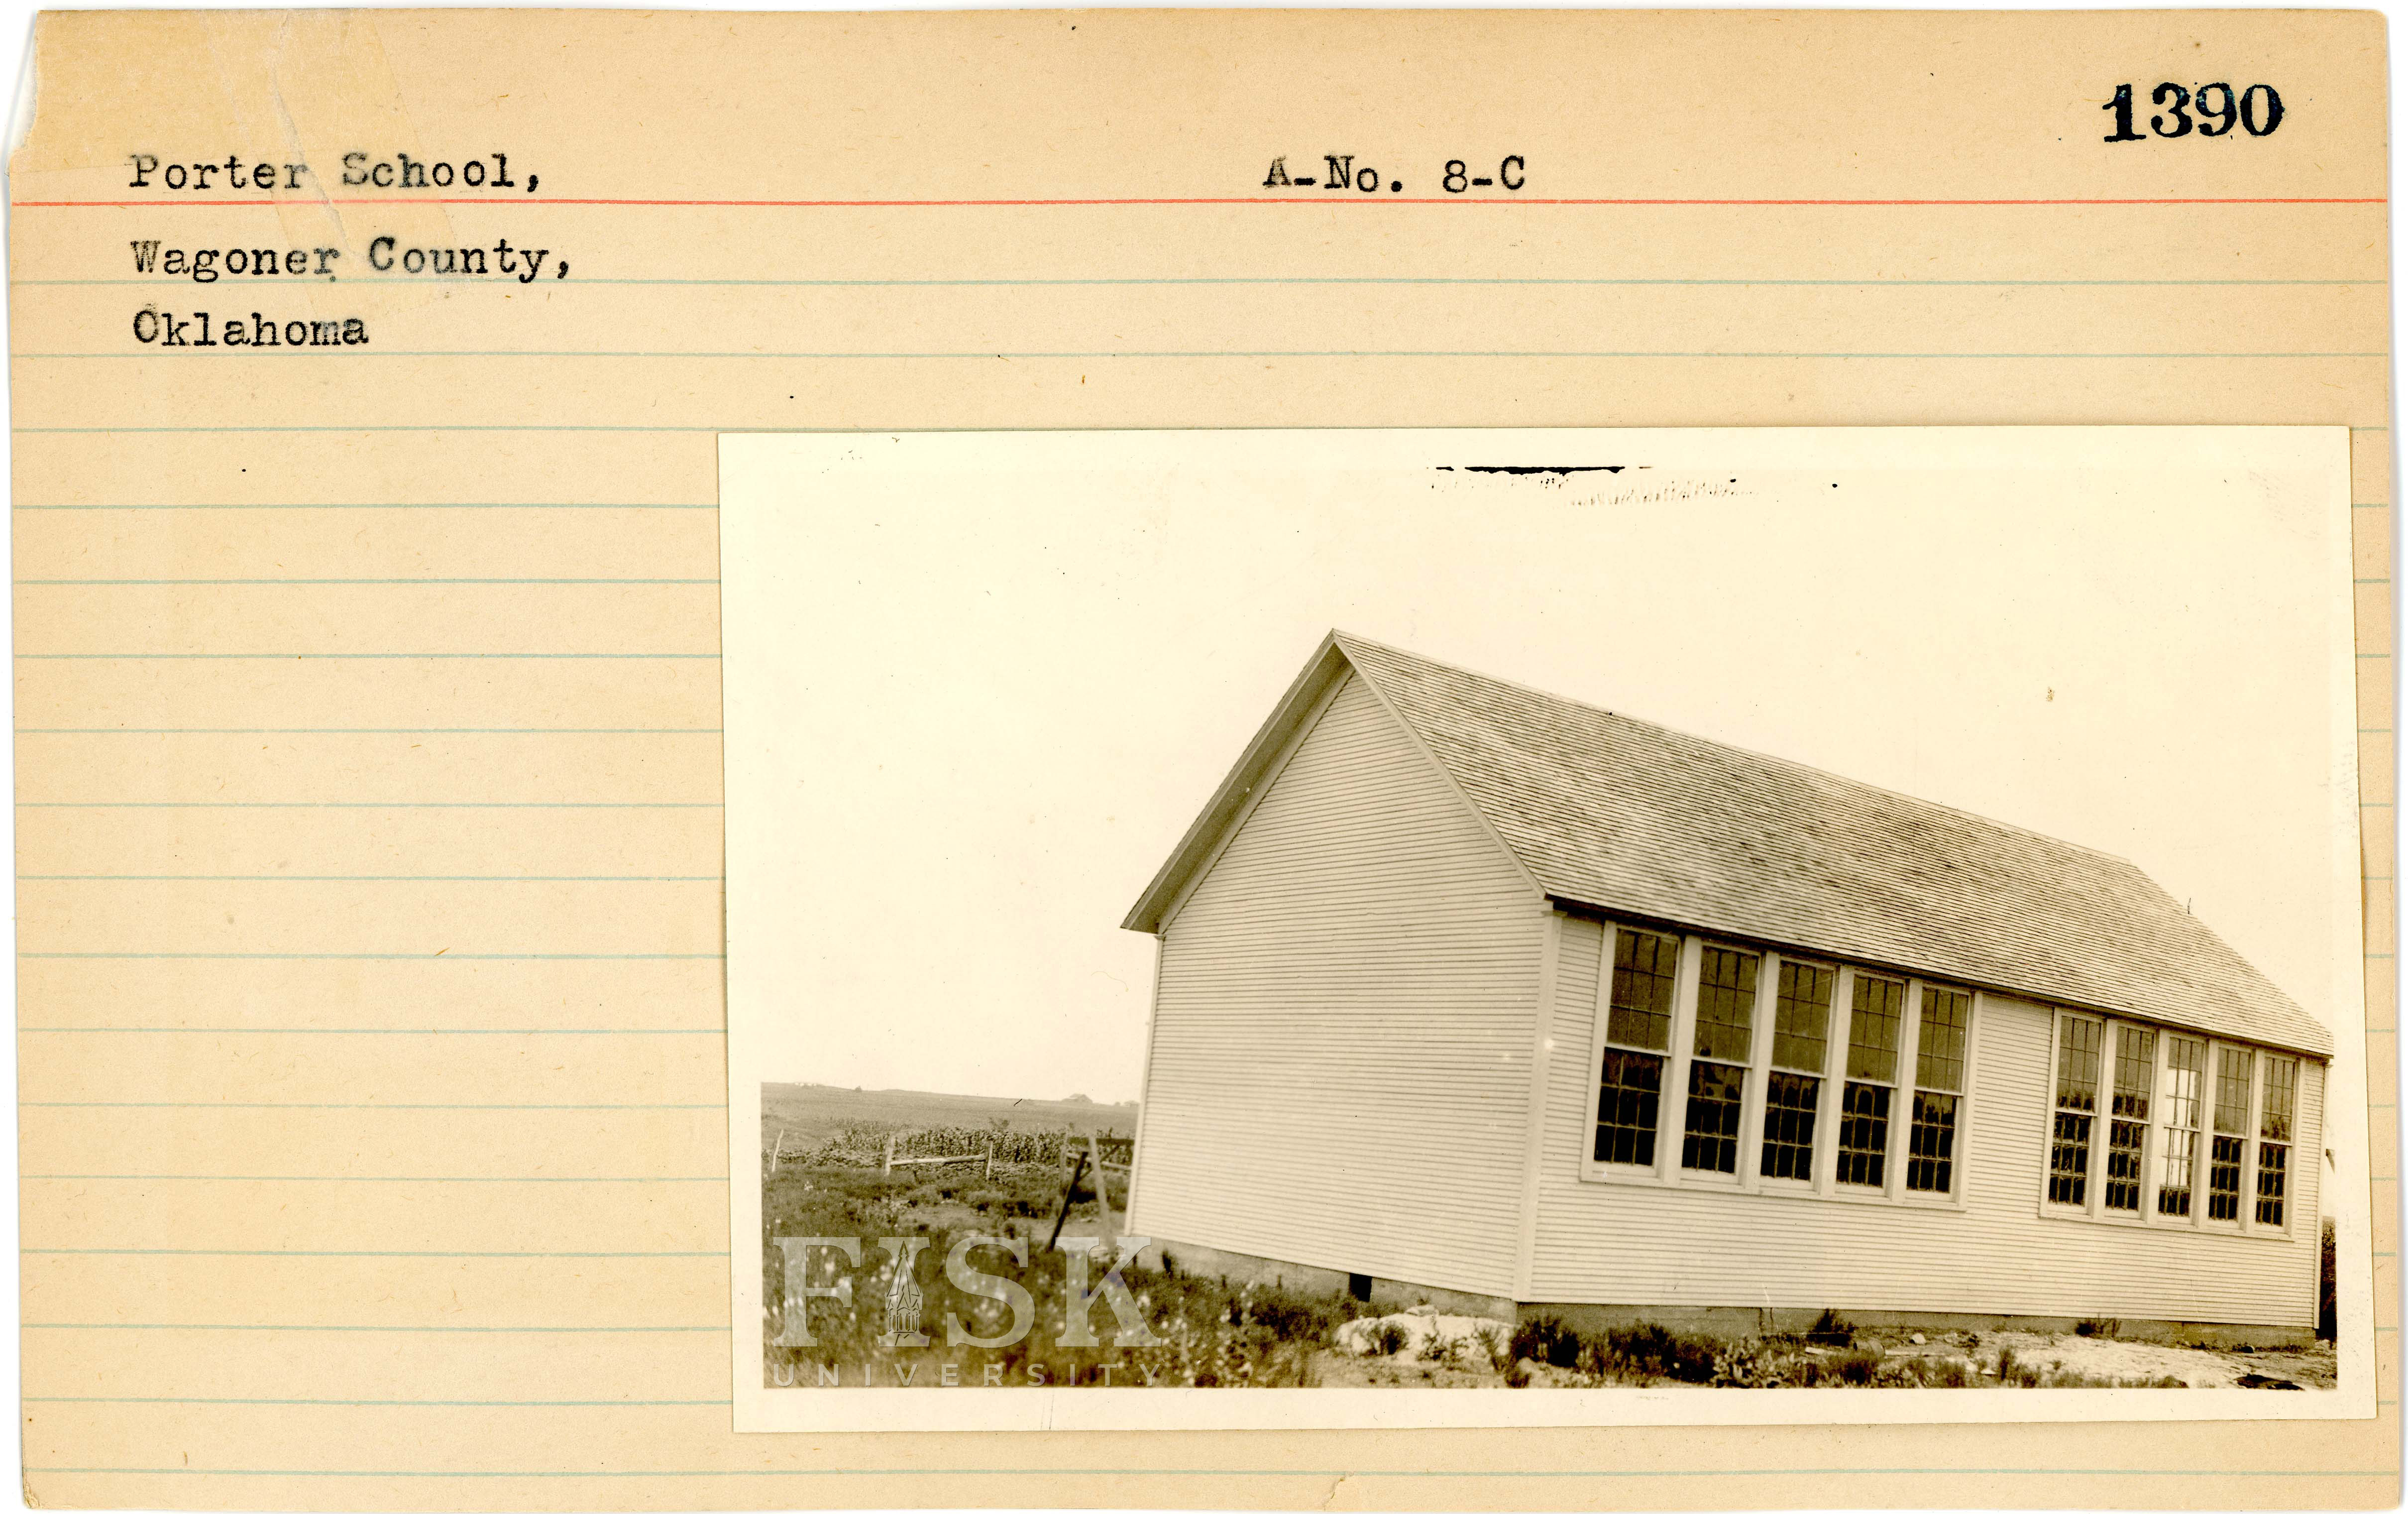 1390
Porter School, A-No. 8-C
Wagoner County,
Oklahoma
FISK
UNIVERSITY